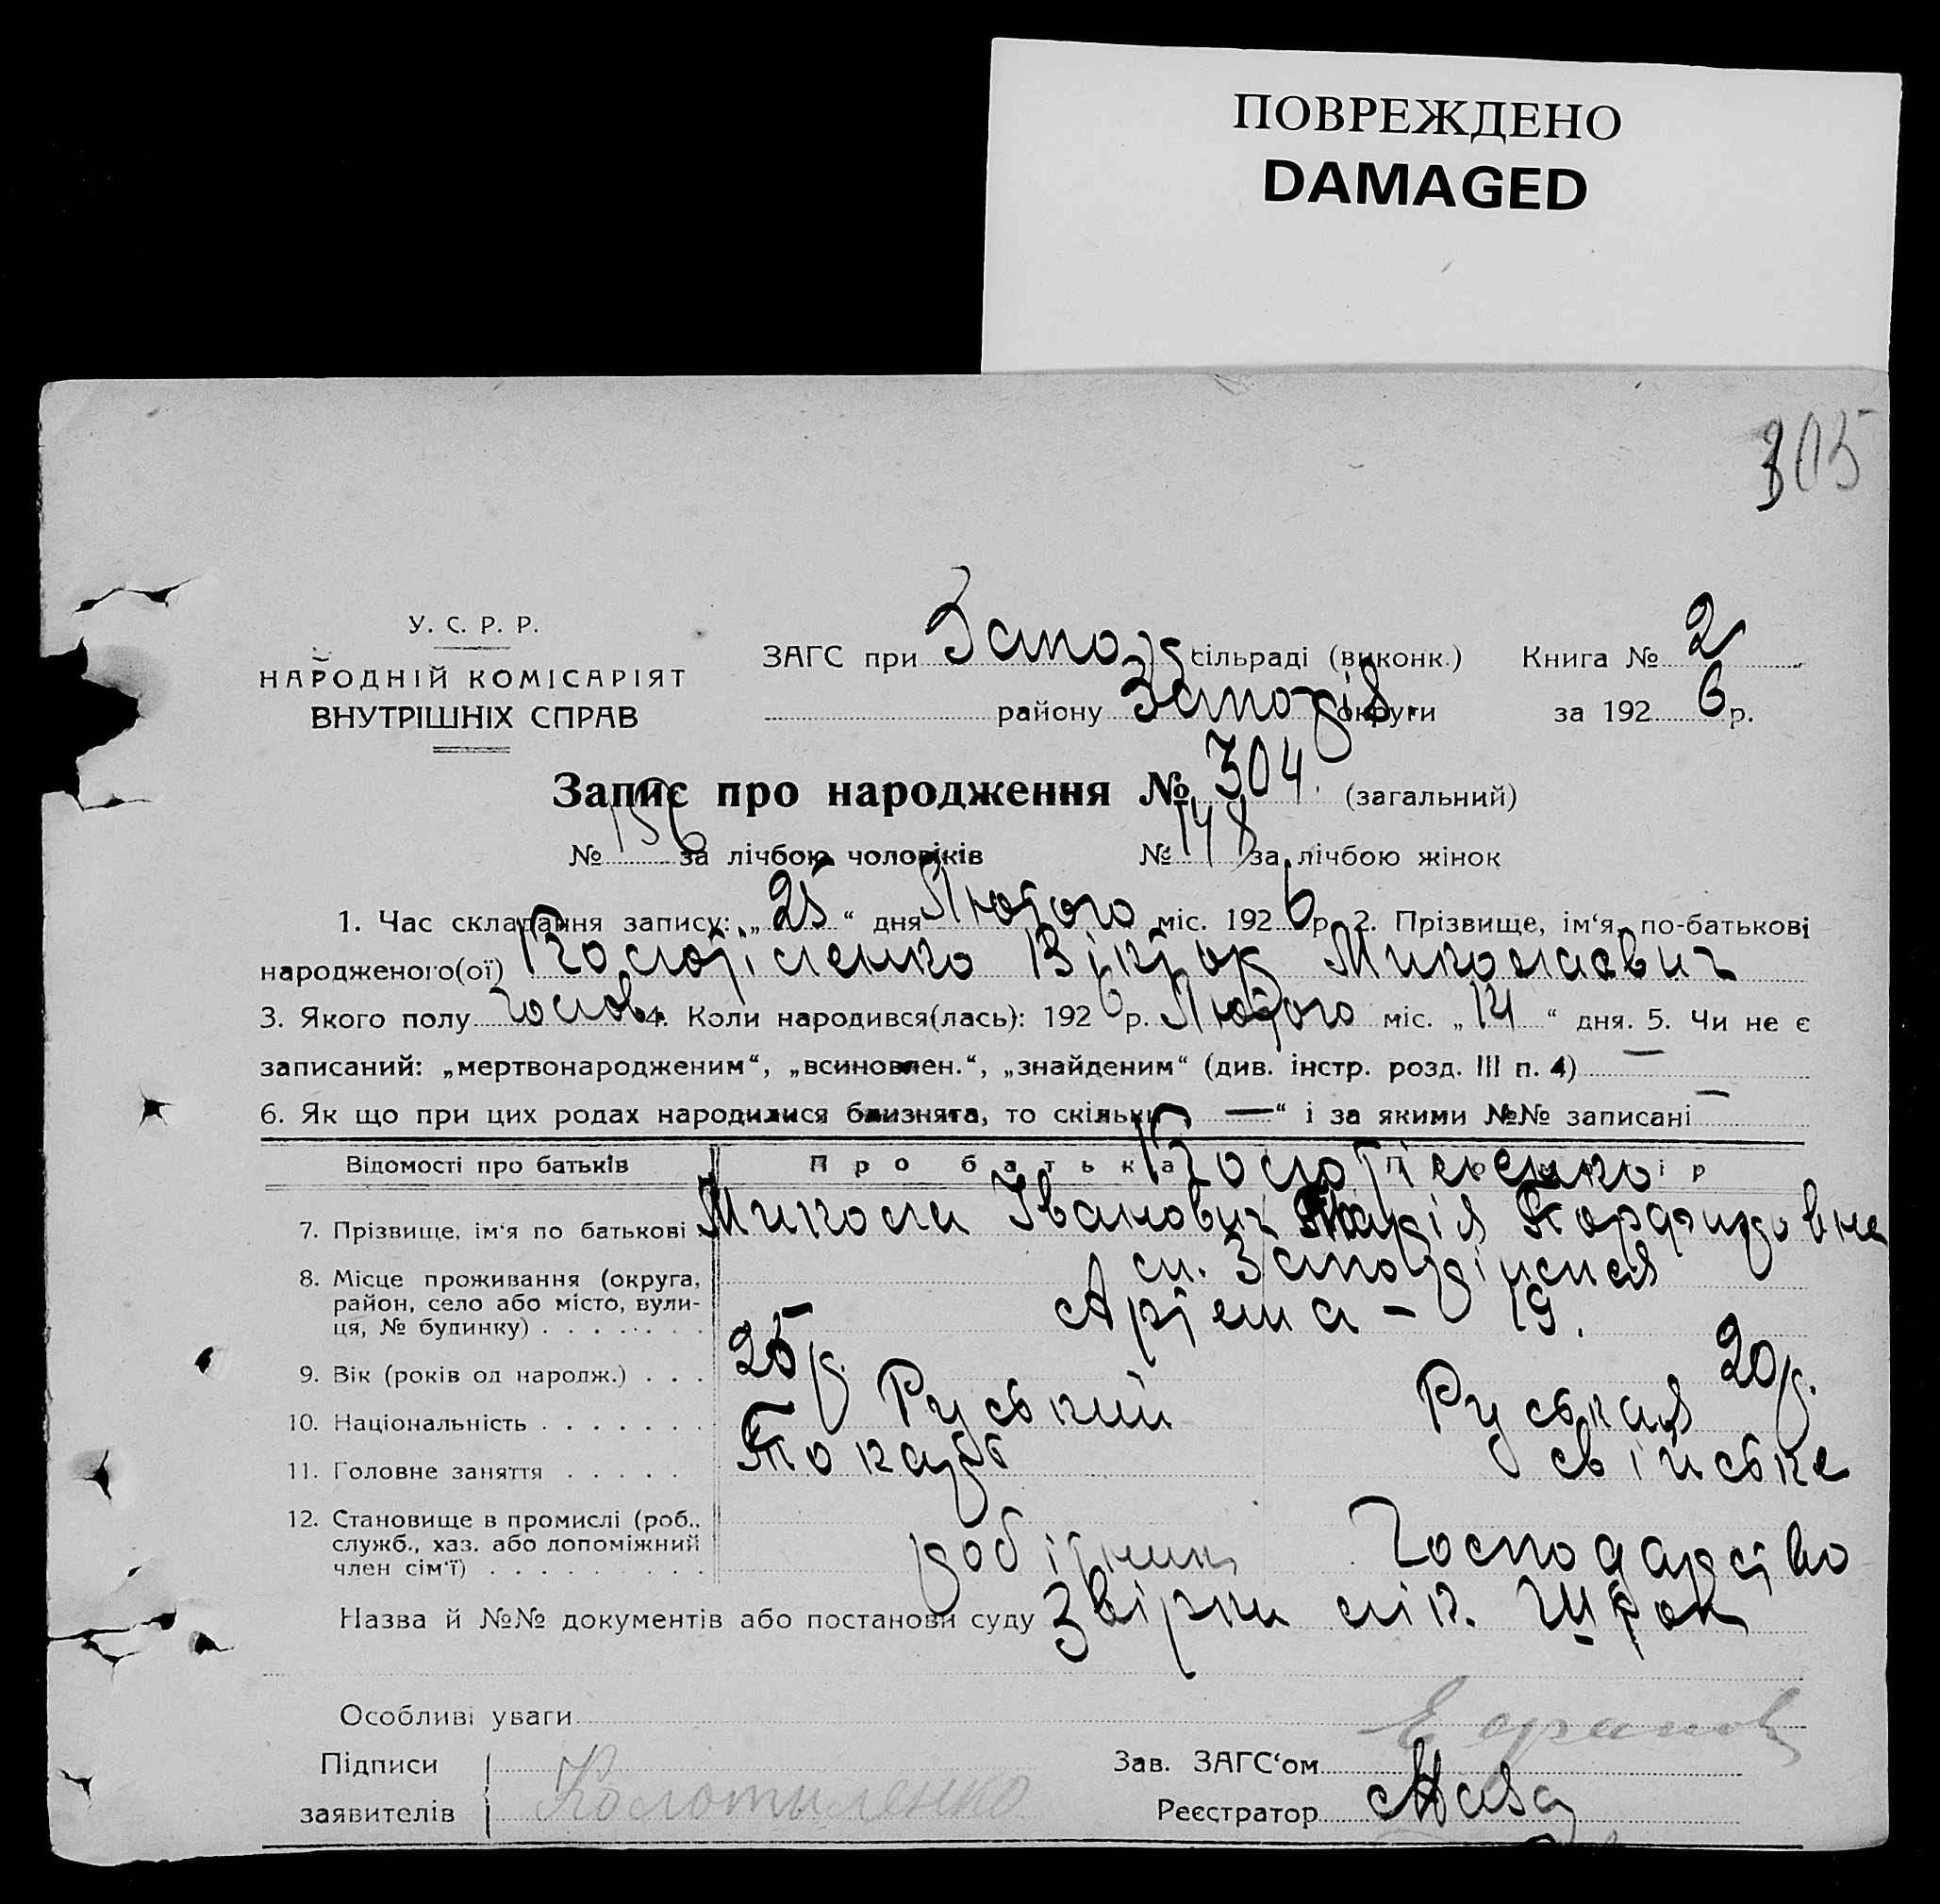 ПОВРЕЖДЕНО
DAMAGED
305
У. С. Р. Р.
НАРОДНІЙ КОМІСАРІЯТ
ВНУТРІШНІХ СПРАВ
ЗАГС при Запор сільраді (виконк.) Книга № 2
району Запоріз. округи за 1926 р.
Запис про народження № 304. (загальний)
№ 156 за лічбою чоловіків № 148 за лічбою жінок
1. Час складання запису: „25“ дня Лютого міс. 1926 р. 2. Прізвище, ім‘я, по-батькові
народженого(ої) Колотіленко Віктор Миколаєвич
3. Якого полу Чолов. 4. Коли народився(лась): 1926 р. Лютого міс. „14“ дня. 5. Чи не є
записаний: „мертвонародженим“, „всиновлен.“, „знайденим“ (див. інстр. розд. III п. 4) —
6. Як що при цих родах народилися близнята, то скільки — “ і за якими №№ записані —
Відомості про батьків Про батька Про матір
Колотіленко
7. Прізвище, ім‘я по батькові Микола Іванович Марія Порфировна
8. Місце проживання (округа, район, село або місто, вулиця, № будинку) . . . . . . . м. Запоріжжя
Артема – 19.
9. Вік (років од народж.) . . . 25 р. 20 р.
10. Національність . . . . . . . Руський Руськая
11. Головне заняття . . . . . Токарь свійське
12. Становище в промислі (роб., служб., хаз. або допоміжний член сім‘ї) . . . . . . . . . робітник Господарство
Назва й №№ документів або постанови суду Звірки лік.
Особливі уваги
Підписи
заявителів Колотиленко
Зав. ЗАГС‘ом
Реєстратор